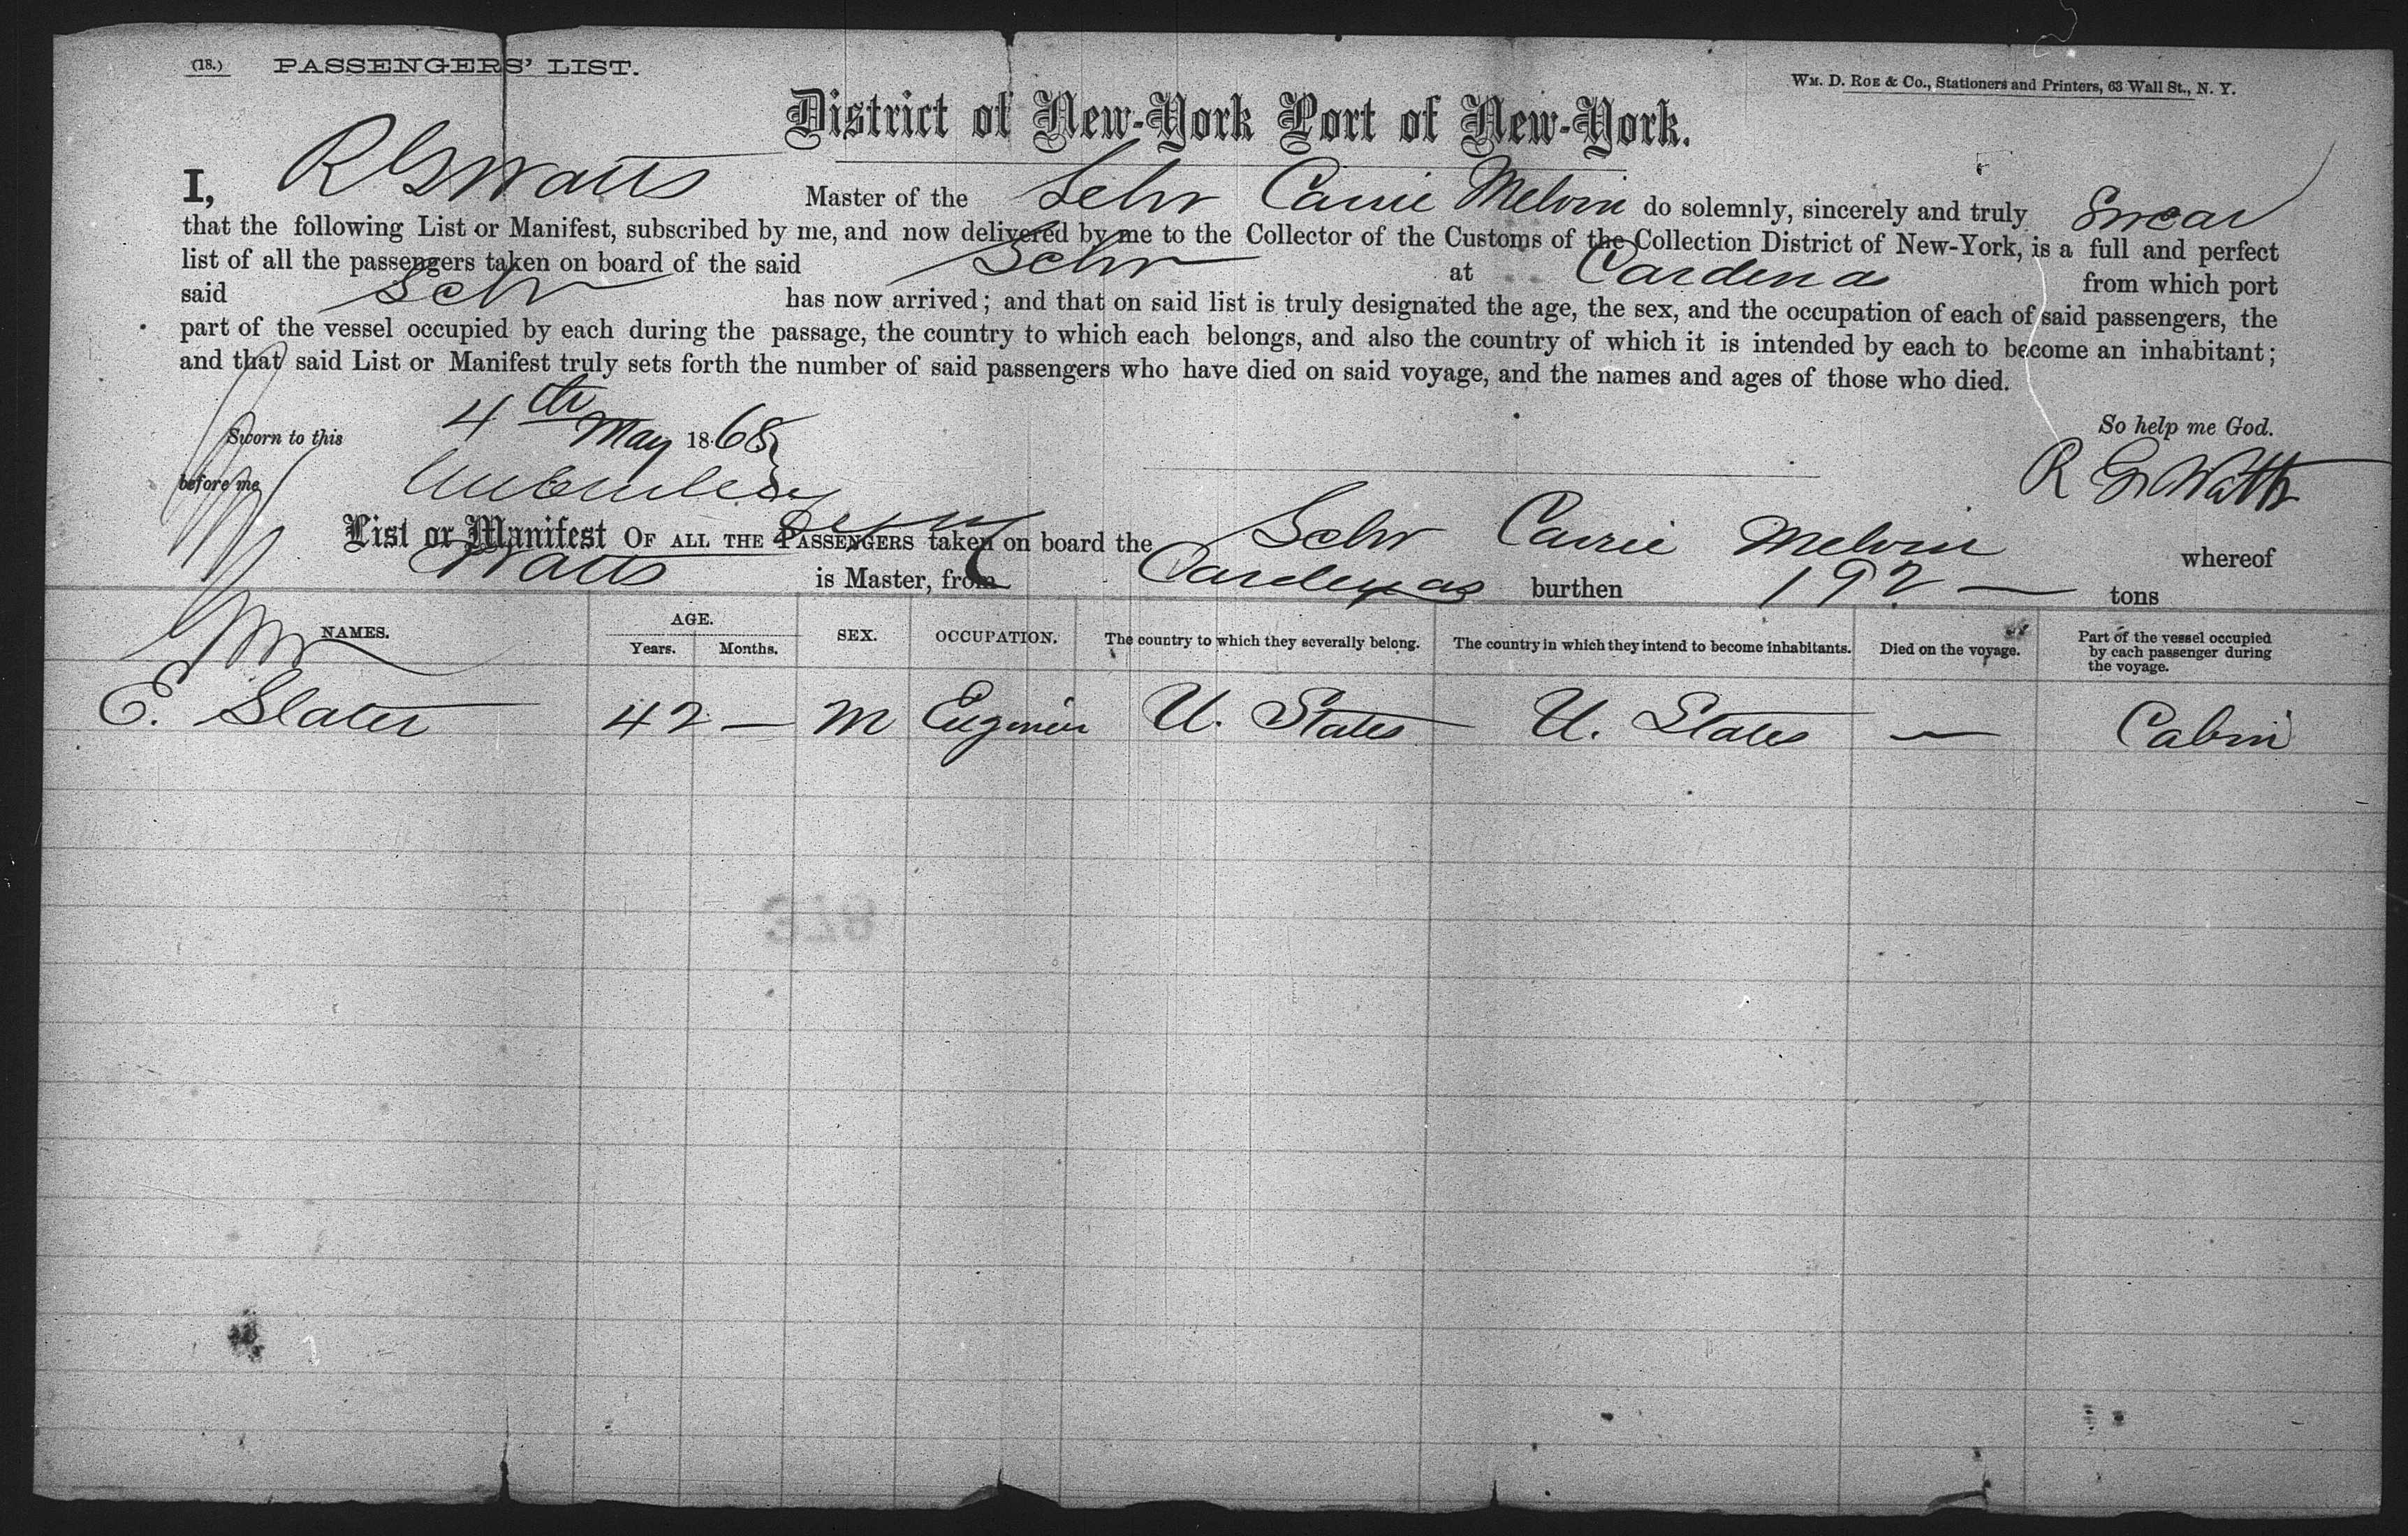 (18.) PASSENGERS' LIST.
WM. D. ROE & Co., Stationers and Printers, 63 Wall St., N. Y.
District of New-York Port of New-York.
I, R G Watts Master of the Schr Carrie Melvin do solemnly, sincerely and truly Swear
that the following List or Manifest, subscribed by me, and now delivered by me to the Collector of the Customs of the Collection District of New-York, is a full and perfect
list of all the passengers taken on board of the said Schr at Cardenas from which port
said Schr has now arrived; and that on said list is truly designated the age, the sex, and the occupation of each of said passengers, the
part of the vessel occupied by each during the passage, the country to which each belongs, and also the country of which it is intended by each to become an inhabitant;
and that said List or Manifest truly sets forth the number of said passengers who have died on said voyage, and the names and ages of those who died.
So help me God.
Sworn to this 4th May 1868
R G Watts
before me
List or Manifest OF ALL THE PASSENGERS taken on board the Schr Carrie Melvin whereof
Watts is Master, from Cardenas burthen 192 — tons
NAMES. AGE. Years. Months. SEX. OCCUPATION. The country to which they severally belong. The country in which they intend to become inhabitants. Died on the voyage. Part of the vessel occupied by each passenger during the voyage.
E. Slater 42 — M Enginier U. States U. States — Cabin
378